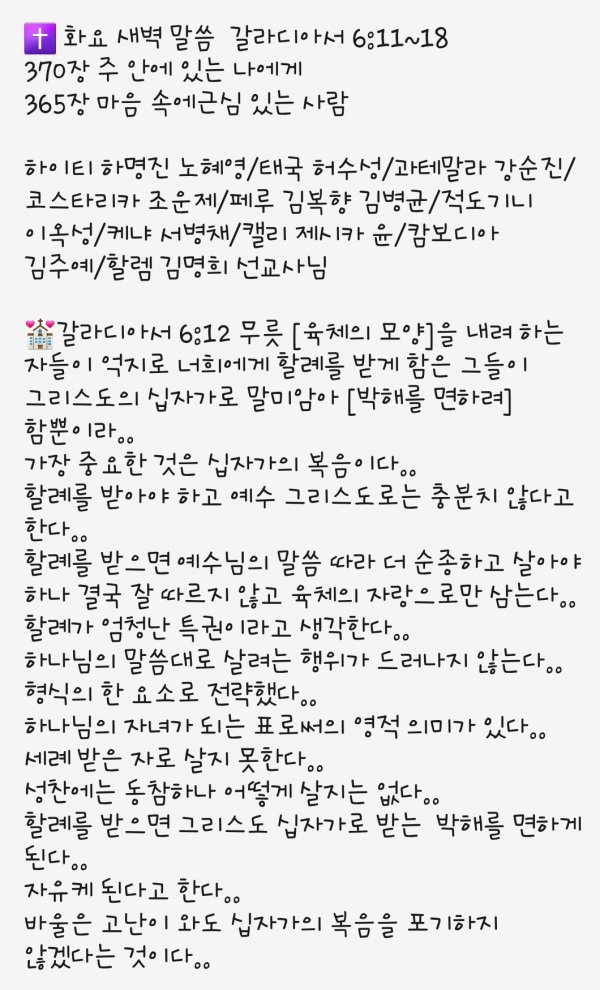 ✝️ 화요 새벽 말씀  갈라디아서 6:11~18
370장 주 안에 있는 나에게
365장 마음 속에근심 있는 사람

하이티 하명진 노혜영/태국 허수성/과테말라 강순진/
코스타리카 조운제/페루 김복향 김병균/적도기니
이옥성/케냐 서병채/캘리 제시카 윤/캄보디아
김주예/할렘 김명희 선교사님

💒갈라디아서 6:12 무릇 [육체의 모양]을 내려 하는
자들이 억지로 너희에게 할례를 받게 함은 그들이
그리스도의 십자가로 말미암아 [박해를 면하려]
함뿐이라。。
가장 중요한 것은 십자가의 복음이다。。
할례를 받아야 하고 예수 그리스도로는 충분치 않다고
한다。。
할례를 받으면 예수님의 말씀 따라 더 순종하고 살아야
하나 결국 잘 따르지 않고 육체의 자랑으로만 삼는다。。
할례가 엄청난 특권이라고 생각한다。。
하나님의 말씀대로 살려는 행위가 드러나지 않는다。。
형식의 한 요소로 전략했다。。
하나님의 자녀가 되는 표로써의 영적 의미가 있다。。
세례 받은 자로 살지 못한다。。
성찬에는 동참하나 어떻게 살지는 없다。。
할례를 받으면 그리스도 십자가로 받는  박해를 면하게
된다。。
자유케 된다고 한다。。
바울은 고난이 와도 십자가의 복음을 포기하지
않겠다는 것이다。。